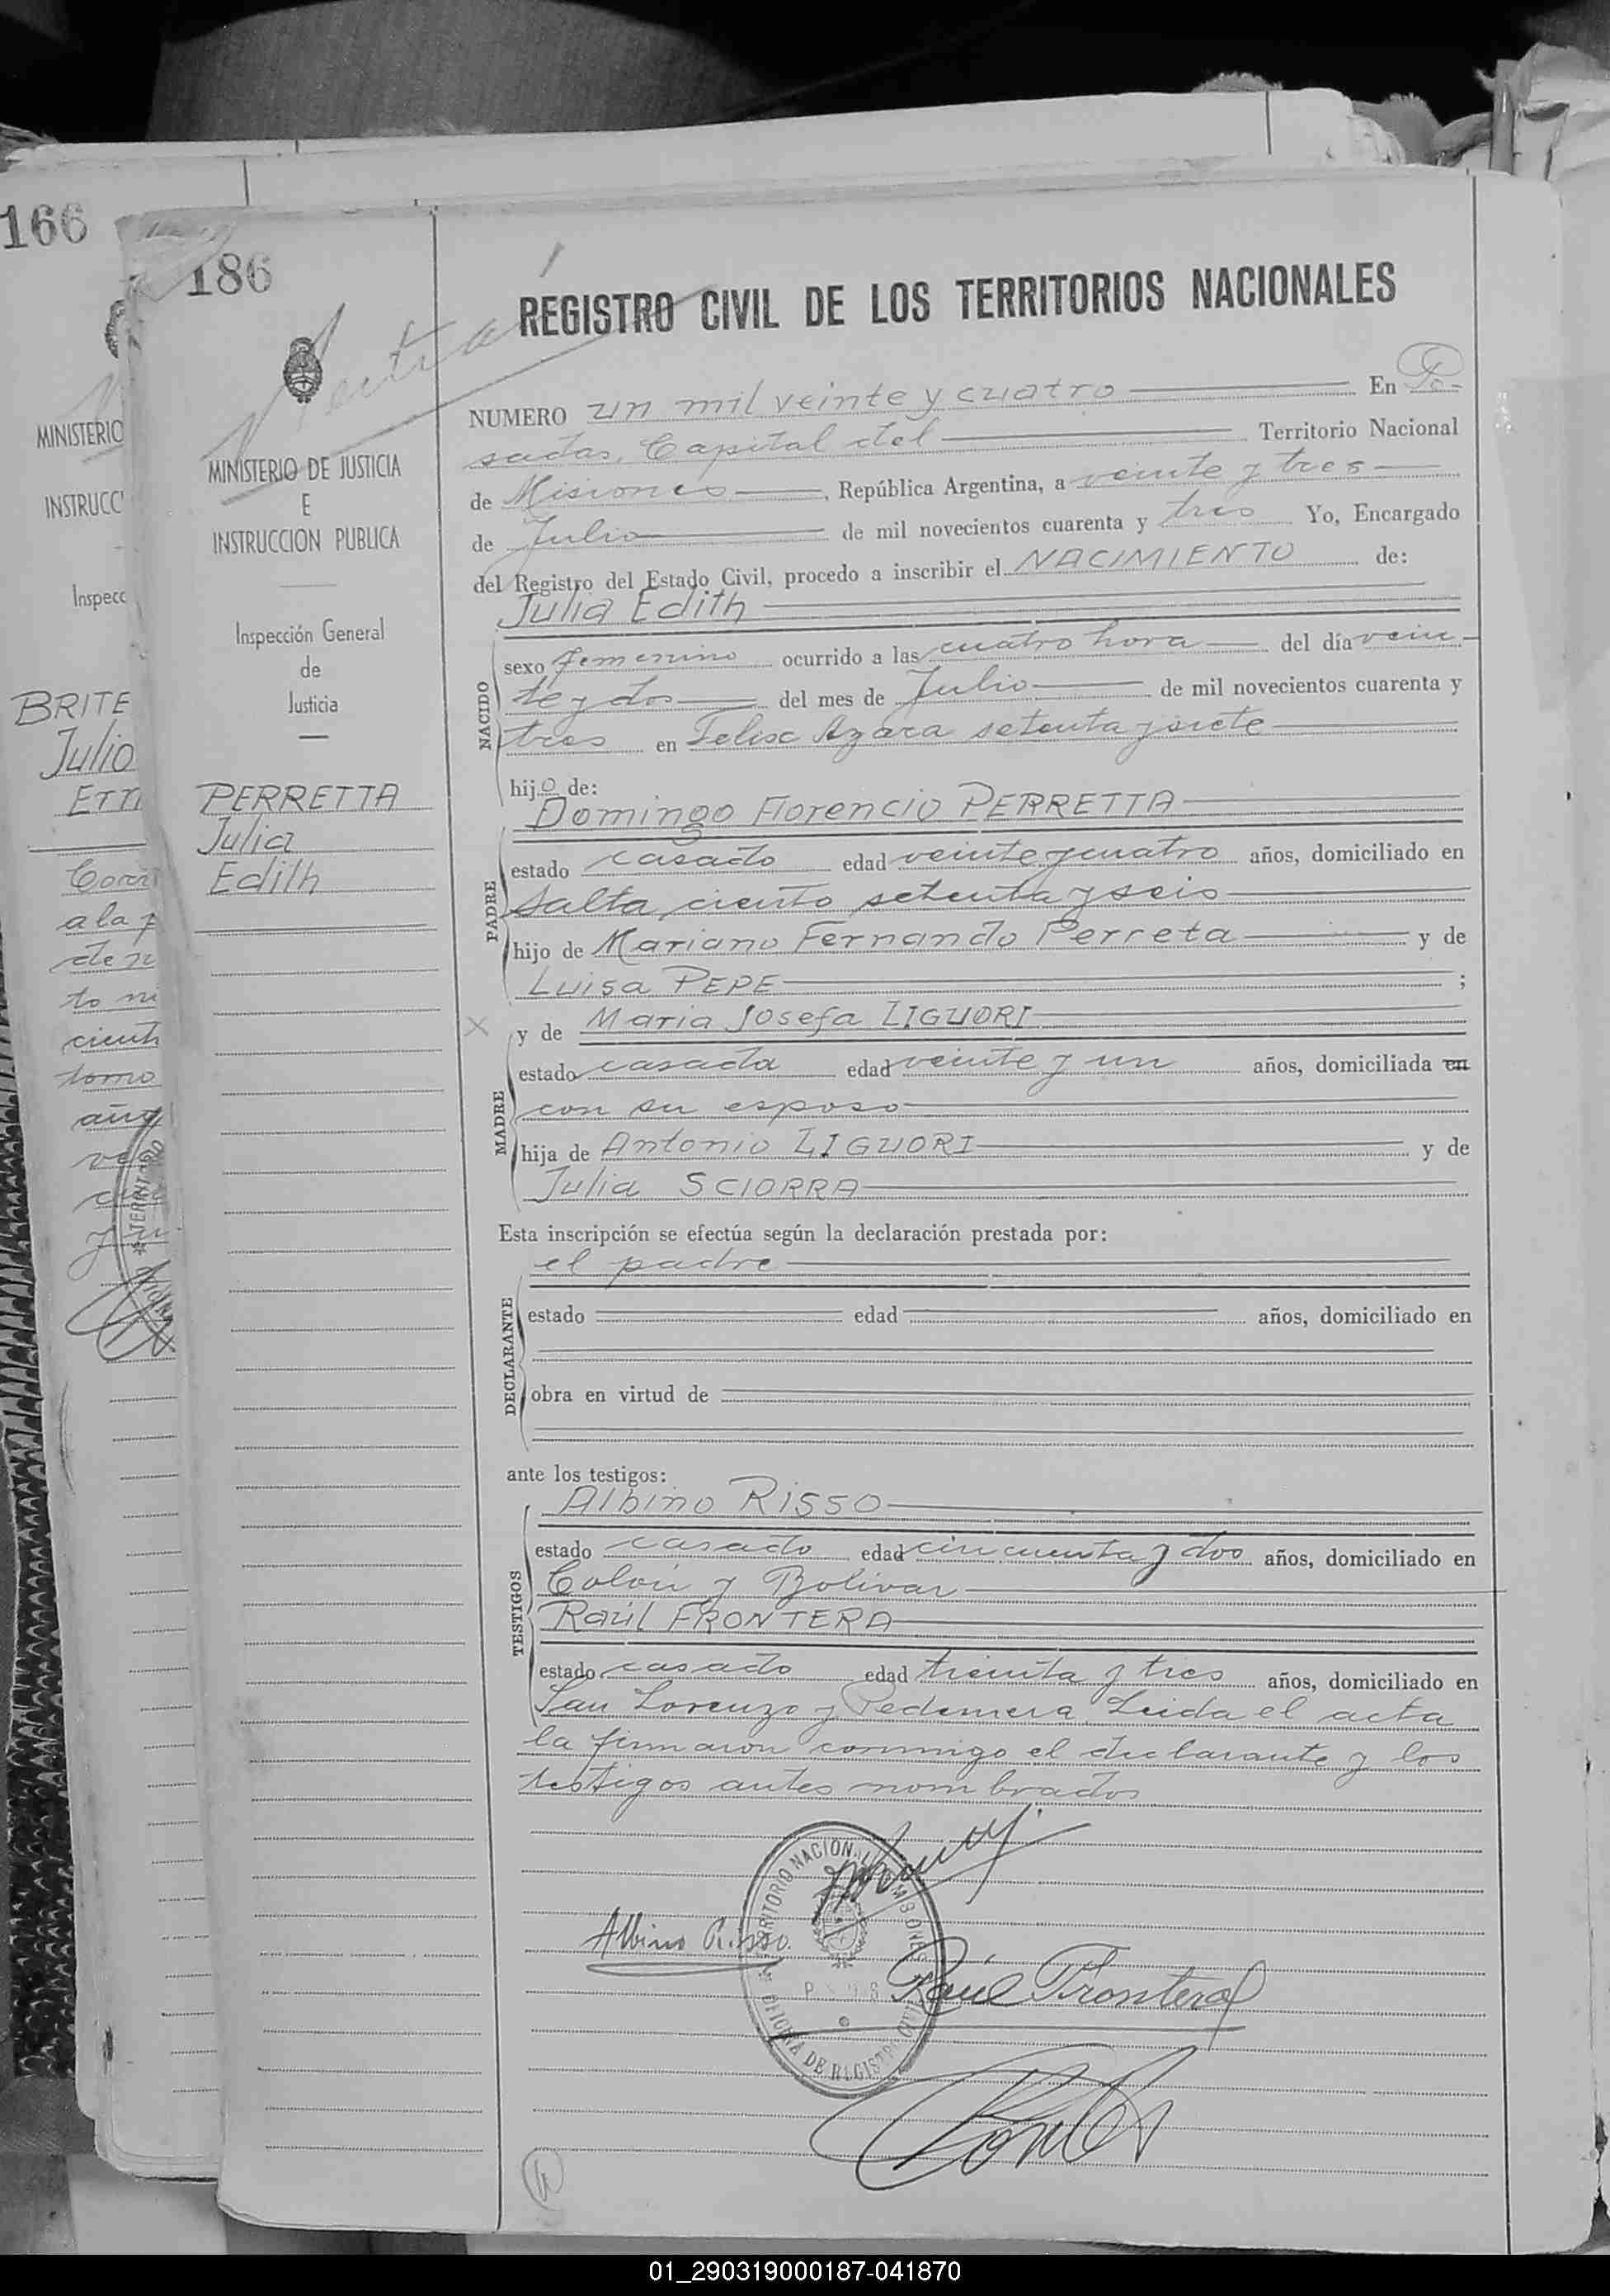 166
MINISTERIO
INSTRUCC
Inspecc
BRITE
Julio
a la
de
to
cient
tomo
186
Neutra
MINISTERIO DE JUSTICIA
E
INSTRUCCION PUBLICA
Inspección General
de
Justicia
PERRETTA
Julia
Edith
REGISTRO CIVIL DE LOS TERRITORIOS NACIONALES
NUMERO un mil veinte y cuatro En Po-
sadas, Capital del Territorio Nacional
de Misiones, República Argentina, a veinte y tres
de Julio de mil novecientos cuarenta y tres Yo, Encargado
del Registro del Estado Civil, procedo a inscribir el NACIMIENTO de:
Julia Edith
NACIDO
sexo femenino ocurrido a las cuatro hora del día vein-
te y dos del mes de Julio de mil novecientos cuarenta y
tres en Felix Azara setenta y siete
hijo de:
Domingo Florencio PERRETTA
PADRE
estado casado edad veinte y cuatro años, domiciliado en
Salta ciento setenta y seis
hijo de Mariano Fernando Perreta y de
Luisa PEPE ;
x y de Maria Josefa LIGUORI
MADRE
estado casada edad veinte y un años, domiciliada en
con su esposo
hija de Antonio LIGUORI y de
Julia SCIORRA
Esta inscripción se efectúa según la declaración prestada por:
el padre
DECLARANTE
estado edad años, domiciliado en
obra en virtud de
ante los testigos:
Albino RISSO
TESTIGOS
estado casado edad cincuenta y dos años, domiciliado en
Colón y Bolivar
Raúl FRONTERA
estado casado edad treinta y tres años, domiciliado en
San Lorenzo y Pedernera. Leida el acta
la firmaron conmigo el declarante y los
testigos antes nombrados
TERRITORIO NACIONAL DE MISIONES
Albino Risso.
Raúl Frontera
OFICINA DE REGISTRO CIVIL
01_290319000187-041870